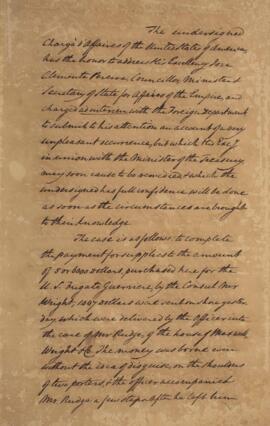 The undersigned
Chargé d'Affaires of the United States of America
has the honor to address His Excellency José
Clemente Pereira Councillor Minister &
Secretary of State for Affairs of the Empire, and
charged ad interim with the Foreign Department
to submit to his attention an account of a very
unpleasant occurrence, but which His Exc.y
in union with the Minister of the Treasury
may soon cause to be remedied & which the
undersigned has full confidence will be done
as soon as the circumstances are brought
to their knowledge.
The case is as follows: to complete
the payment for supplies to the amount
of 5 or 6000 dollars, purchased here for the
U.S. Frigate Guerriere, by the Consul Mr
Wright, dollars were sent on shore yester-
day which were delivered by the Officer into
the care of Mr Rudge, of the house of
Wright & Co. The money was borne even
without the idea of disguise, on the shoulders
of two porters, & the officer accompanied
Mr. Rudge a few steps after he left him